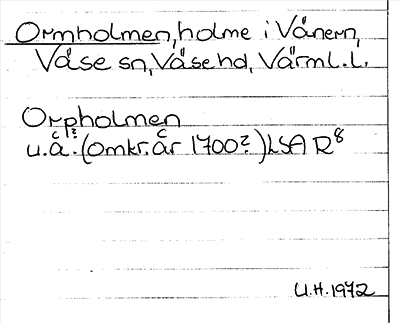 Ormholmen, holme i Vänern,
Väse sn, Väse hd, Värml. l.
Orpholmen
u.å. (omkr. år 1700?) LSA R8
U.H. 1972